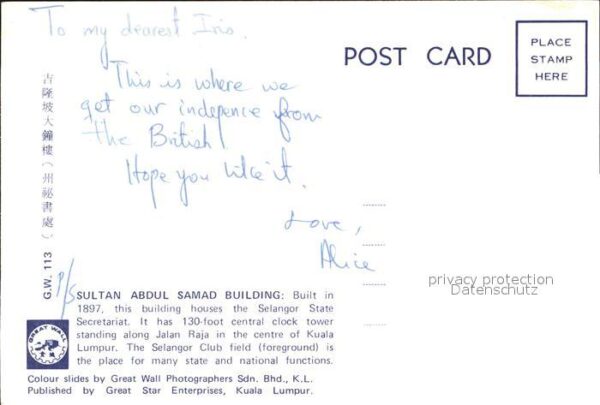 To my dearest Iris.
This is where we
get our indepence from
the British
Hope you like it.
Love,
Alice
P/S
POST CARD
PLACE
STAMP
HERE
吉隆坡大鐘樓(州祕書處)
G.W. 113
SULTAN ABDUL SAMAD BUILDING: Built in
1897, this building houses the Selangor State
Secretariat. It has 130-foot central clock tower
standing along Jalan Raja in the centre of Kuala
Lumpur. The Selangor Club field (foreground) is
the place for many state and national functions.
GREAT WALL
Colour slides by Great Wall Photographers Sdn. Bhd., K.L.
Published by Great Star Enterprises, Kuala Lumpur.
privacy protection
Datenschutz